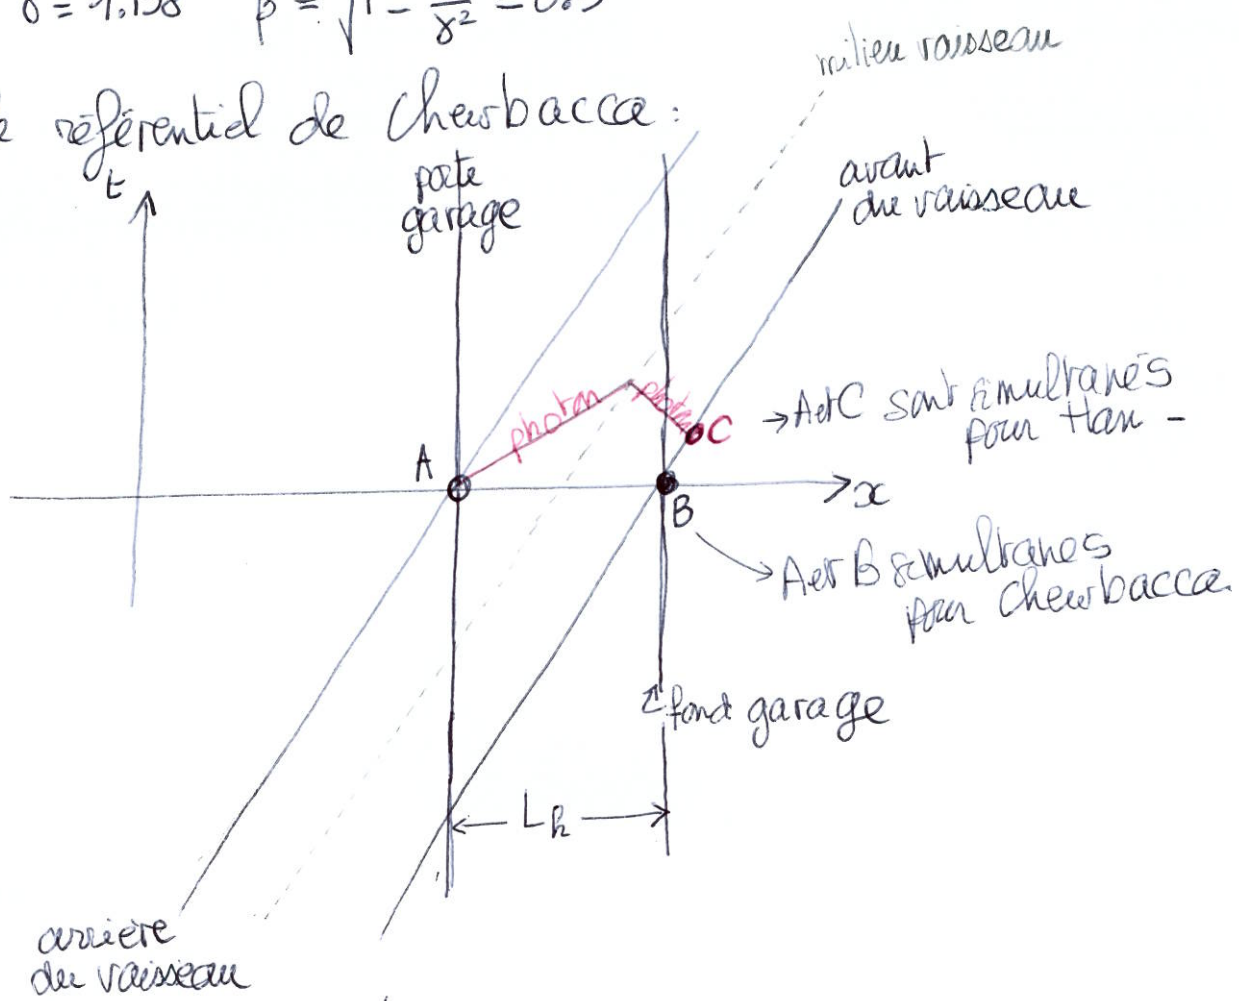 γ = 1.158 β = √1 - 1/γ² = 0.5
référentiel de Chewbacca :
milieu vaisseau
t
porte
garage
avant
du vaisseau
photon
photon
C
→ A et C sont simultanés
pour Han -
A
x
B
→ A et B simultanés
pour Chewbacca.
fond garage
L_h
arrière
du vaisseau